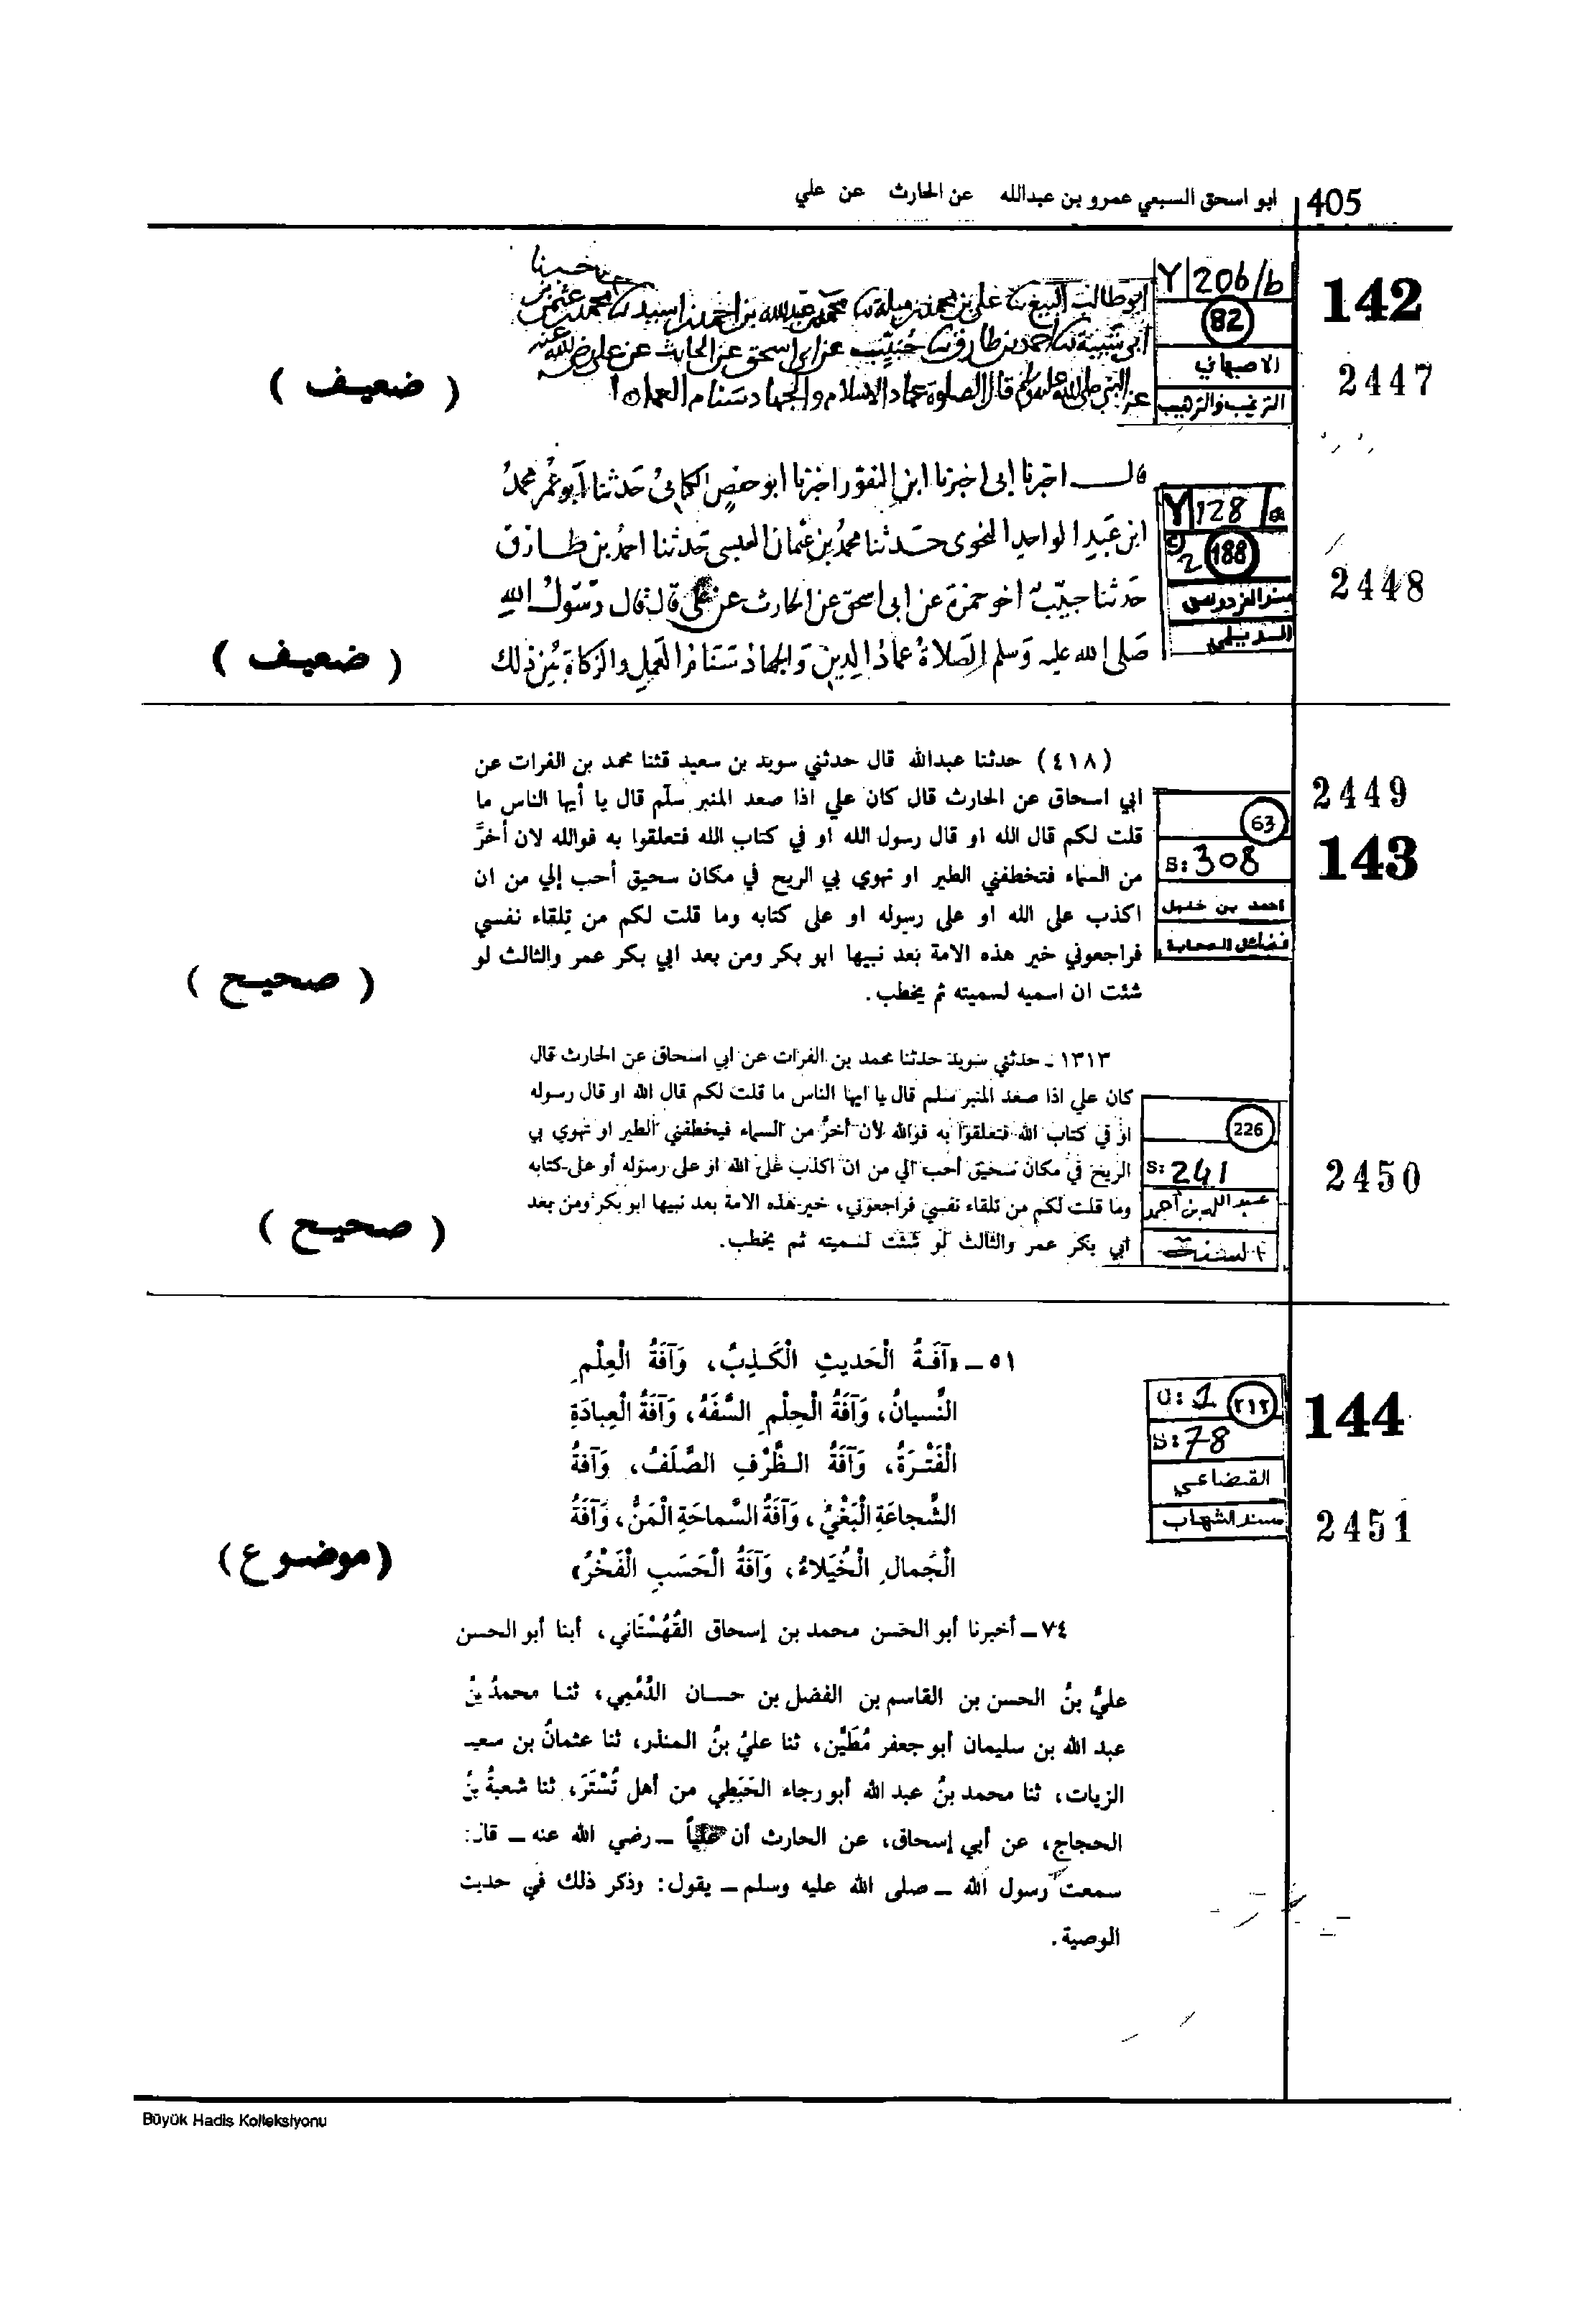 405
ابو اسحق السبعي عمرو بن عبدالله عن الحارث عن علي
142
2447
Y 206/b
82
الاصبهاني
الترغيب والترهيب
اخبرنا
ابو طالب البيع علي بن محمد بن ميلة محمد بن عبدالله بن احمد بن اسيد محمد بن عثمن بن
ابي شيبة احمد بن طارق حُبيّب عن ابي اسحق عن الحارث عن علي رضي الله عنه
عن النبي صلى الله عليه وسلم قال الصلوة عماد الاسلام والجهاد سنام العمل
( ضعيف )
2448
Y 128/a
2 188
مسند الفردوس
الديلمي
قال اخبرنا ابي اخبرنا ابن النقور اخبرنا ابو حفص الكتاني حدثنا أبو عُمر محمدُ
ابن عَبدِ الواحِد النحوى حدثنا محمدُ بن عثمان العبسى حَدثنا احمدُ بن طارق
حَدثنا حبيّبٌ اخو حمزة عن ابى اسحق عن الحارث عن على قال قال رسول الله
صَلى الله عليه وَسلم الصَلاةُ عمادُ الدين وَالجهادُ سَنَامُ العَمل والزكاة بين ذلك
( ضعيف )
2449
143
63
S: 308
احمد بن حنبل
فضائل الصحابة
(٤١٨) حدثنا عبدالله قال حدثني سويد بن سعيد قثنا محمد بن الفرات عن
ابي اسحاق عن الحارث قال كان علي اذا صعد المنبر سلّم قال يا أيها الناس ما
قلت لكم قال الله او قال رسول الله او في كتاب الله فتعلقوا به فوالله لان أخرَّ
من السماء فتخطفني الطير او تهوي بي الريح في مكان سحيق أحب إلي من ان
اكذب على الله او على رسوله او على كتابه وما قلت لكم من تلقاء نفسي
فراجعوني خير هذه الامة بعد نبيها ابو بكر ومن بعد ابي بكر عمر والثالث لو
شئت ان اسميه لسميته ثم يخطب.
( صحيح )
2450
226
S: 241
عبد الله بن أحمد
السنة
١٣١٣ ـ حدثني سويد حدثنا محمد بن الفرات عن ابي اسحاق عن الحارث قال
كان علي اذا صعد المنبر سلم قال يا ايها الناس ما قلت لكم قال الله او قال رسوله
او في كتاب الله فتعلقوا به فوالله لأن أخرَّ من السماء فيخطفني الطير او تهوي بي
الريح في مكان سحيق أحب الي من ان اكذب على الله او على رسوله أو على كتابه
وما قلت لكم من تلقاء نفسي فراجعوني، خير هذه الامة بعد نبيها ابو بكر ومن بعد
أبي بكر عمر والثالث لو شئت لسميته ثم يخطب.
( صحيح )
144
2451
C: 1 ٢١٢
S: 78
القضاعي
مسند الشهاب
٥١ ـ «آفَةُ الْحَديثِ الْكَذِبُ، وَآفَةُ الْعِلْمِ
النِّسيانُ، وَآفَةُ الْحِلْمِ السَّفَهُ، وَآفَةُ الْعِبادَةِ
الْفَتْرَةُ، وَآفَةُ الظَّرْفِ الصَّلَفُ، وَآفَةُ
الشَّجاعَةِ الْبَغْيُ، وَآفَةُ السَّماحَةِ الْمَنُّ، وَآفَةُ
الْجَمالِ الْخُيَلاءُ، وَآفَةُ الْحَسَبِ الْفَخْرُ»
(موضوع)
٧٤ ـ أخبرنا أبو الحسن محمد بن إسحاق القُهُسْتَاني، أبنا أبو الحسن
عليُّ بنُ الحسن بن القاسم بن الفضل بن حسان الدُمَمِي، ثنا محمدُ بنُ
عبد الله بن سليمان أبو جعفر مُطَيَّن، ثنا عليُ بنُ المنذر، ثنا عثمانُ بن سعيد
الزيات، ثنا محمد بنُ عبد الله أبو رجاء الحَبَطِي من أهل تُسْتَرَ، ثنا شعبةُ بنُ
الحجاج، عن أبي إسحاق، عن الحارث أن علياً ـ رضي الله عنه ـ قال:
سمعت رسول الله ـ صلى الله عليه وسلم ـ يقول: وذكر ذلك في حديث
الوصية.
Büyük Hadis Kolleksiyonu